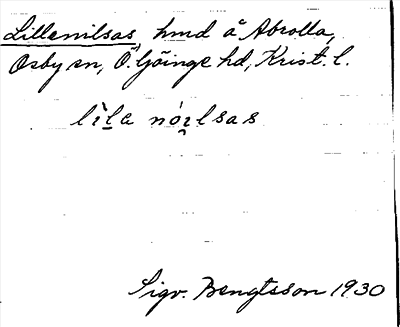 Lillenilsas, hmd å Abrolla,
Osby sn, Ö. Göinge hd, Krist. l.
lìla nóilsas
Sigv. Bengtsson 1930